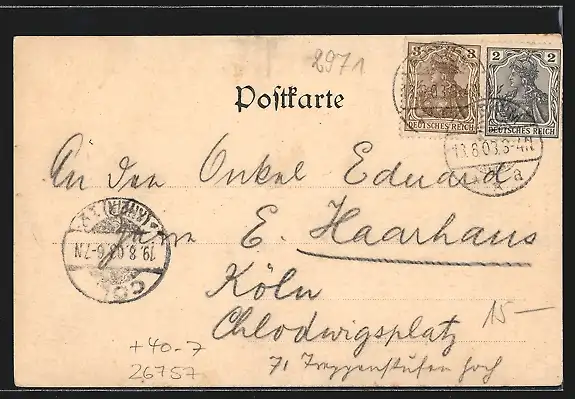 2971
3 3
DEUTSCHES REICH
2 2
DEUTSCHES REICH
Postkarte
13.8.03.3-4N
a
An den Onkel Eduard
E. Haarhaus
*(RHEIN)
19.8.03.6-7N
CÖL
Köln
Chlodwigsplatz
15—
71 Treppenstufen hoch
+40-7
26757